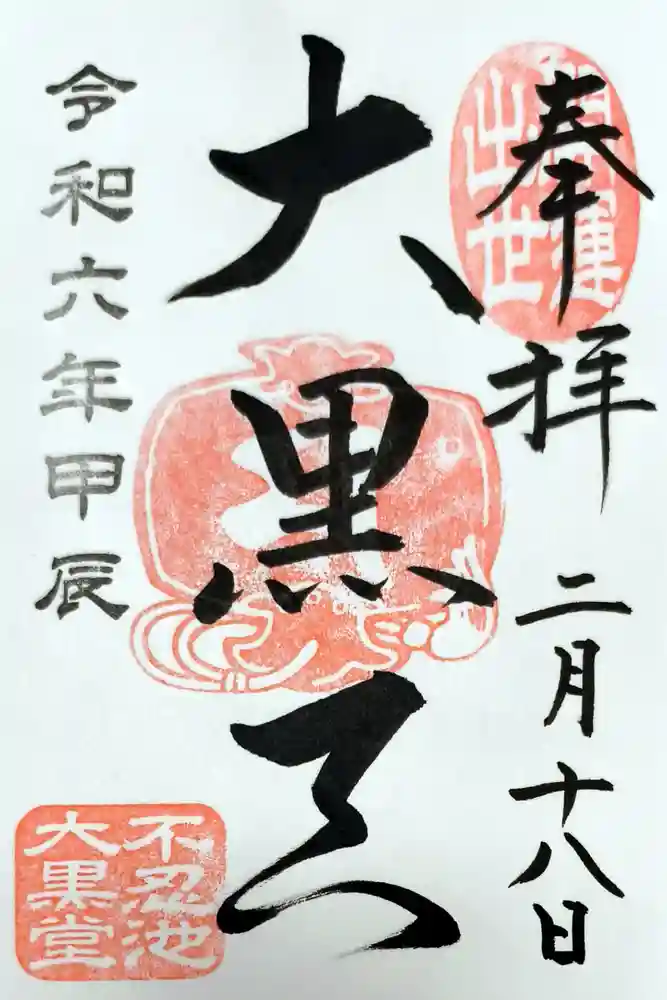 奉拝
開運
出世
二月十八日
大黒天
令和六年甲辰
不忍池
大黒堂